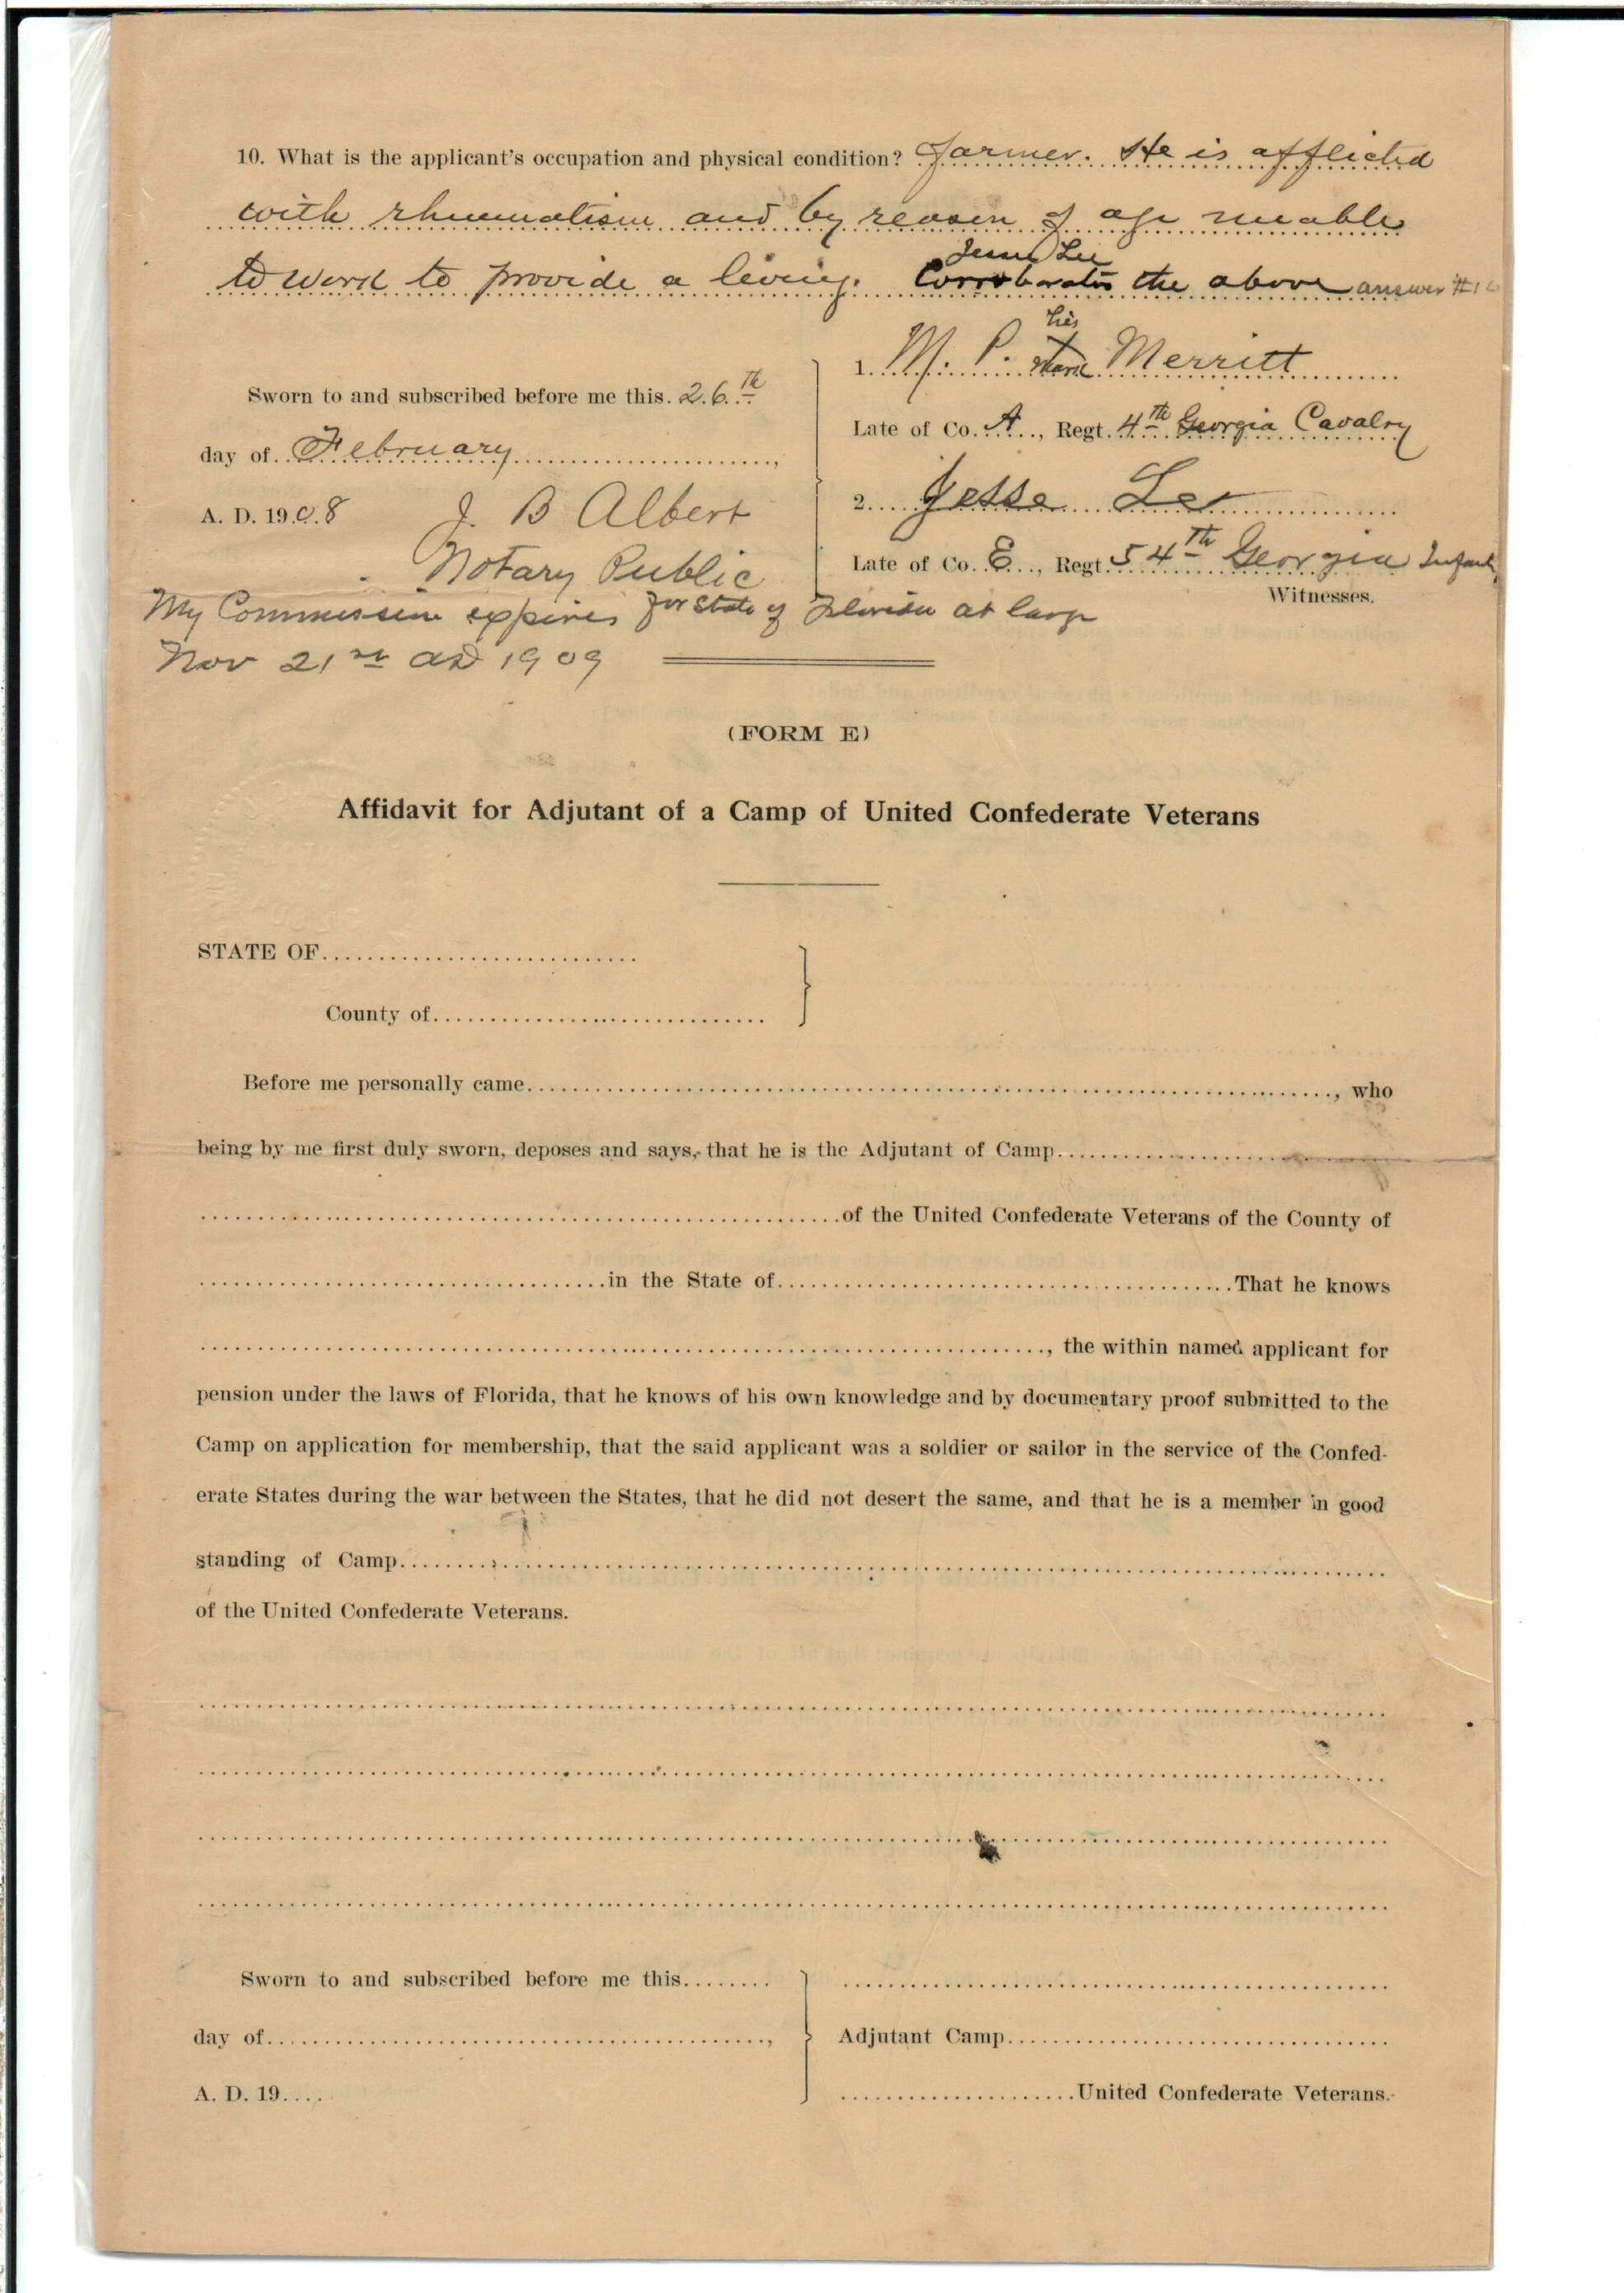 10. What is the applicant's occupation and physical condition? Farmer. He is afflicted
with rhuematism and by reason of age unable
Jesse Lee
to work to provide a living. Corroborates the above answer #10
his
1. M. P. mark Merritt
Sworn to and subscribed before me this 26th
Late of Co. A, Regt. 4th Georgia Cavalry
day of February,
2. Jesse Lee
A. D. 1908 J. B Albert
Late of Co. E, Regt 54th Georgia
Notary Public
Witnesses.
My Commission expires for State of Florida at large
Nov 21st AD 1909
(FORM E)
Affidavit for Adjutant of a Camp of United Confederate Veterans
STATE OF
County of
Before me personally came, who
being by me first duly sworn, deposes and says, that he is the Adjutant of Camp
of the United Confederate Veterans of the County of
in the State of That he knows
, the within named applicant for
pension under the laws of Florida, that he knows of his own knowledge and by documentary proof submitted to the
Camp on application for membership, that the said applicant was a soldier or sailor in the service of the Confed-
erate States during the war between the States, that he did not desert the same, and that he is a member in good
standing of Camp
of the United Confederate Veterans.
Sworn to and subscribed before me this
day of,
Adjutant Camp
A. D. 19
United Confederate Veterans.